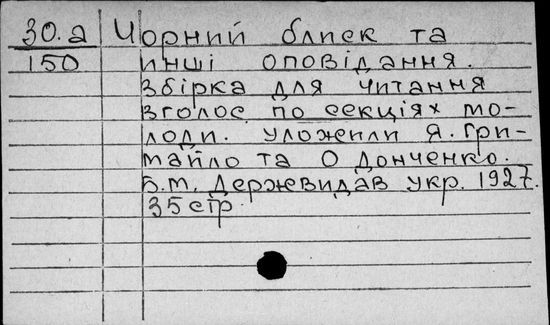 30.а Чорний блиск та
150 инші оповідання.
Збірка для читання
вголос по секціях мо-
лоди. уложили Я. Гри-
майло та О Донченко.
Б.м. Держвидав укр. 1927.
35 стр.